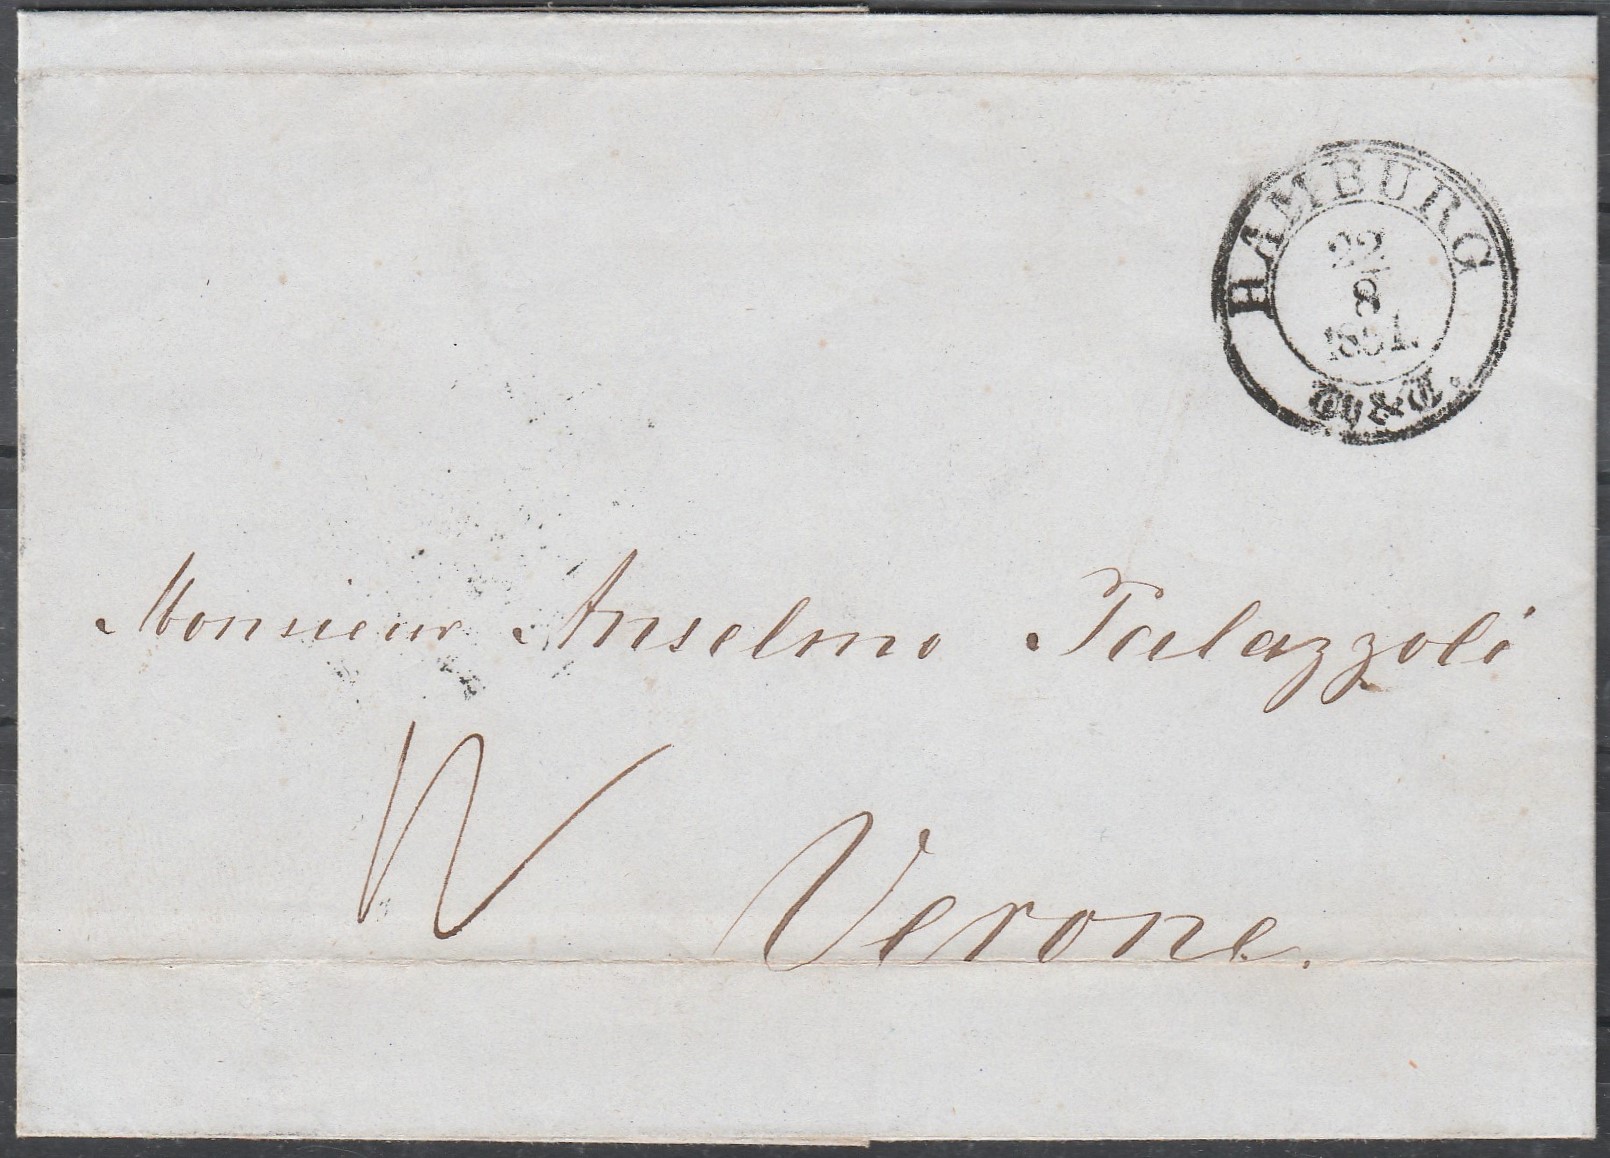 HAMBURG
22
8
1851.
Th & T.
Monsieur Anselmo Palazzoli
Verone.